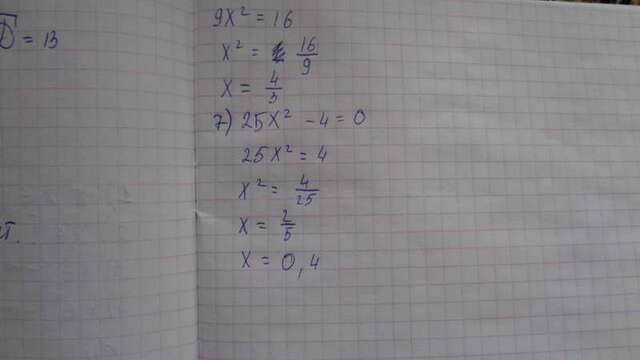 √D = 13
9x² = 16
x² = 16/9
x = 4/3
7) 25x² - 4 = 0
25x² = 4
x² = 4/25
x = 2/5
x = 0,4